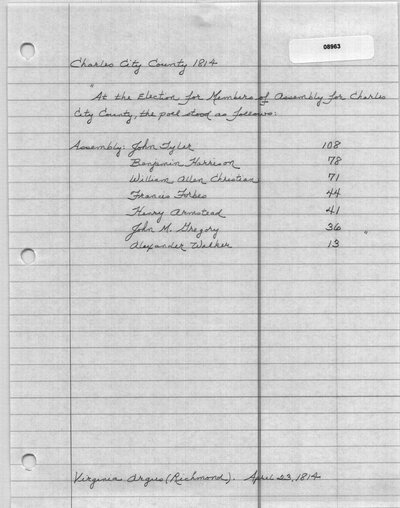 08963
Charles City County 1814
"At the Election for Members of Assembly for Charles
City County, the poll stood as follows:
Assembly: John Tyler 108
Benjamin Harrison 78
William Allen Christian 71
Francis Forbes 44
Henry Armstead 41
John M. Gregory 36 "
Alexander Walker 13
Virginia Argus (Richmond). April 23, 1814